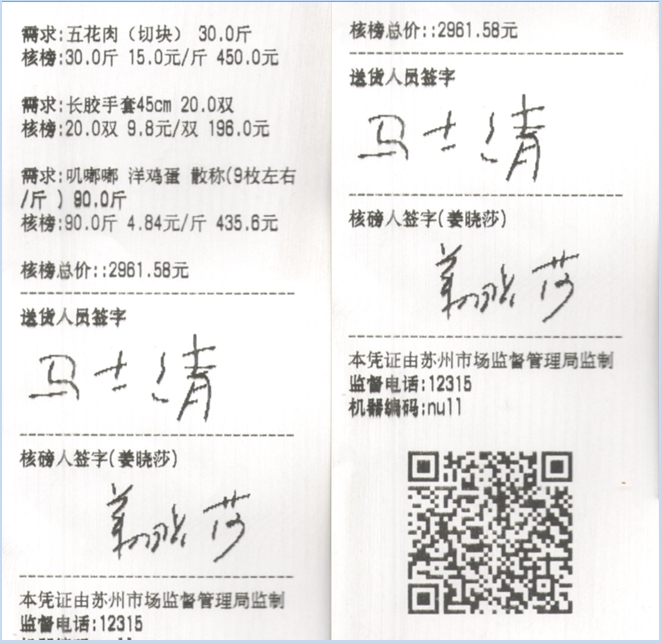 需求:五花肉（切块） 30.0斤
核榜:30.0斤 15.0元/斤 450.0元
需求:长胶手套45cm 20.0双
核榜:20.0双 9.8元/双 196.0元
需求:叽嘟嘟 洋鸡蛋 散称(9枚左右
/斤 ) 90.0斤
核榜:90.0斤 4.84元/斤 435.6元
核榜总价::2961.58元
送货人员签字
马士清
核磅人签字(姜晓莎)
姜晓莎
本凭证由苏州市场监督管理局监制
监督电话:12315
核榜总价::2961.58元
送货人员签字
马士清
核磅人签字(姜晓莎)
姜晓莎
本凭证由苏州市场监督管理局监制
监督电话:12315
机器编码:null